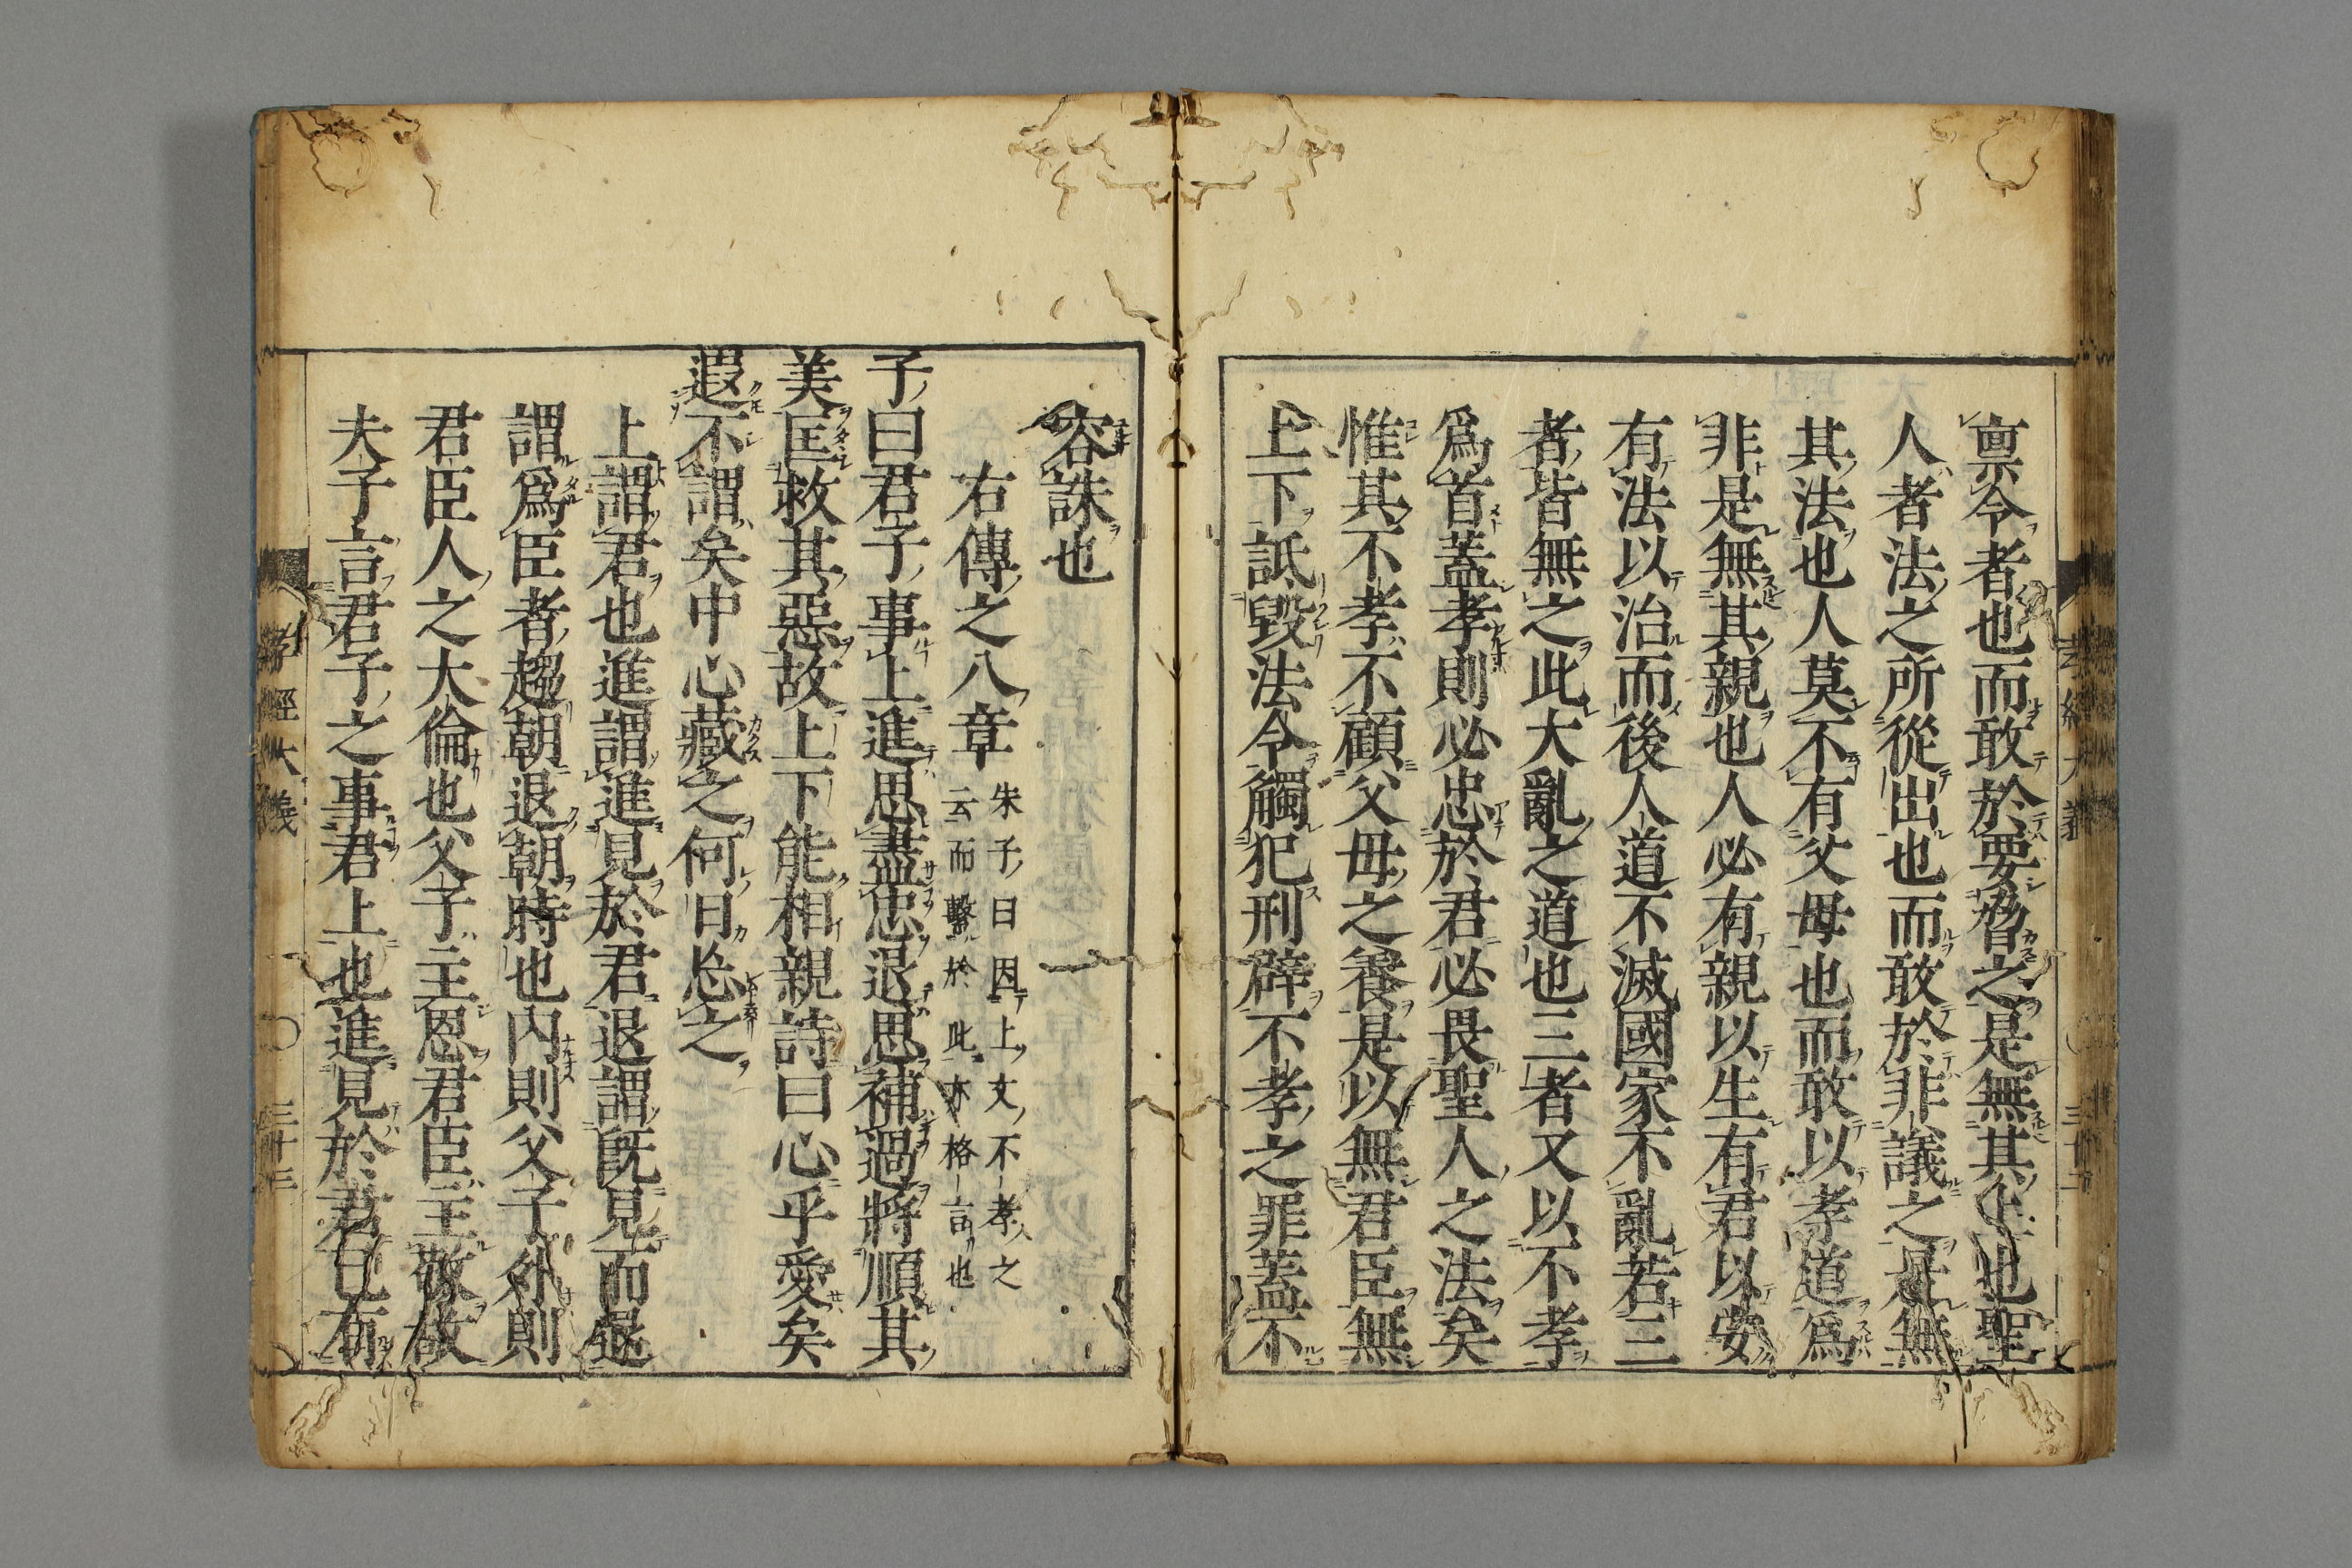 禀令者也而敢於要脅之是無其上也聖
人者法之所從出也而敢於非議之是無
其法也人莫不有父母也而敢以孝道爲
非是無其親也人必有親以生有君以安
有法以治而後人道不滅國家不亂若三
者皆無之此大亂之道也三者又以不孝
爲首蓋孝則必忠於君必畏聖人之法矣
惟其不孝不顧父母之養是以無君臣無
上下詆毀法令觸犯刑辟不孝之罪蓋不
容誅也
右傳之八章
朱子曰因上文不孝之
云而繫於此亦格言也
子曰君子事上進思盡忠退思補過將順其
美匡救其惡故上下能相親詩曰心乎愛矣
遐不謂矣中心藏之何日忘之
上謂君也進謂進見於君退謂既見而退
謂爲臣者趨朝退朝時也内則父子外則
君臣人之大倫也父子主恩君臣主敬故
夫子言君子之事君上也進見於君已有
孝經大義
三十三